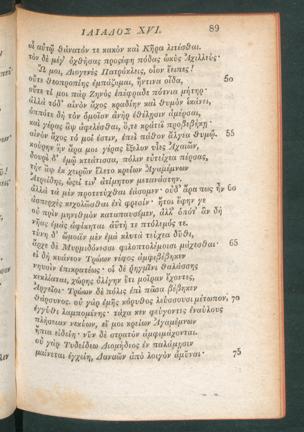 ΙΛΙΑΔΟΣ XVI. 89
οἷ αὐτῷ θάνατόν τε κακὸν καὶ Κῆρα λιτέσθαι.
τὸν δὲ μέγ' ὀχθήσας προςέφη πόδας ὠκὺς Ἀχιλλεύς·
Ὤ μοι, Διογενὲς Πατρόκλεις, οἷον ἔειπες!
οὔτε θεοπροπίης ἐμπάζομαι, ἥντινα οἶδα, 50
οὔτε τί μοι πὰρ Ζηνὸς ἐπέφραδε πότνια μήτηρ·
ἀλλὰ τόδ' αἰνὸν ἄχος κραδίην καὶ θυμὸν ἱκάνει,
ὁππότε δὴ τὸν ὁμοῖον ἀνὴρ ἐθέλῃσιν ἀμέρσαι,
καὶ γέρας ἂψ ἀφελέσθαι, ὅ,τε κράτεϊ προβεβήκῃ·
αἰνὸν ἄχος τό μοί ἐστιν, ἐπεὶ πάθον ἄλγεα θυμῷ. 55
κούρην ἣν ἄρα μοι γέρας ἔξελον υἷες Ἀχαιῶν,
δουρὶ δ' ἐμῷ κτεάτισσα, πόλιν εὐτείχεα πέρσας,
τὴν ἂψ ἐκ χειρῶν ἕλετο κρείων Ἀγαμέμνων
Ἀτρείδης, ὡσεί τιν' ἀτίμητον μετανάστην.
ἀλλὰ τὰ μὲν προτετύχθαι ἐάσομεν· οὐδ' ἄρα πως ἦν 60
ἀσπερχὲς κεχολῶσθαι ἐνὶ φρεσίν· ἤτοι ἔφην γε
οὐ πρὶν μηνιθμὸν καταπαυσέμεν, ἀλλ' ὁπότ' ἂν δὴ
νῆας ἐμὰς ἀφίκηται ἀϋτή τε πτόλεμός τε.
τύνη δ' ὤμοιϊν μὲν ἐμὰ κλυτὰ τεύχεα δῦθι,
ἄρχε δὲ Μυρμιδόνεσσι φιλοπτολέμοισι μάχεσθαι· 65
εἰ δὴ κυάνεον Τρώων νέφος ἀμφιβέβηκεν
νηυσὶν ἐπικρατέως· οἱ δὲ ῥηγμῖνι θαλάσσης
κεκλίαται, χώρης ὀλίγην ἔτι μοῖραν ἔχοντες,
Ἀργεῖοι· Τρώων δὲ πόλις ἐπὶ πᾶσα βέβηκεν
θάρσυνος· οὐ γὰρ ἐμῆς κόρυθος λεύσσουσι μέτωπον, 70
ἐγγύθι λαμπομένης· τάχα κεν φεύγοντες ἐναύλους
πλήσειαν νεκύων, εἴ μοι κρείων Ἀγαμέμνων
ἤπια εἰδείη· νῦν δὲ στρατὸν ἀμφιμάχονται.
οὐ γὰρ Τυδείδεω Διομήδεος ἐν παλάμῃσιν
μαίνεται ἐγχείη, Δαναῶν ἀπὸ λοιγὸν ἀμῦναι· 75